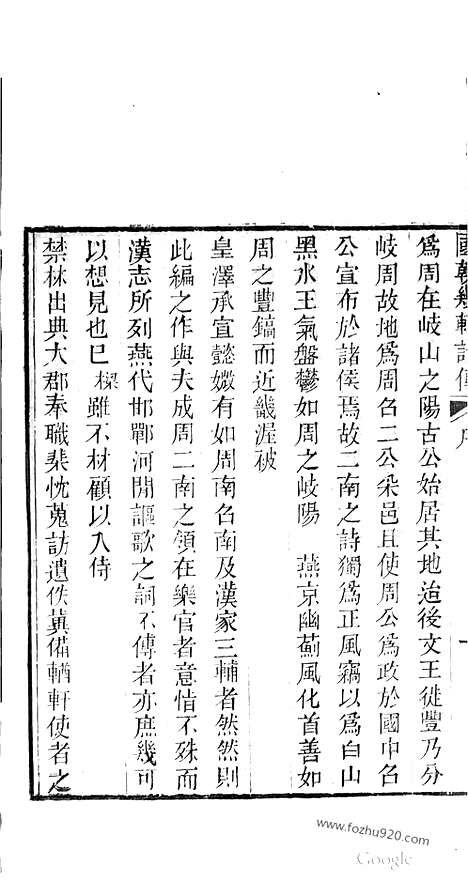 國朝畿輔詩傳 序 一
為周在岐山之陽古公始居其地迨後文王徙豐乃分
岐周故地為周召二公采邑且使周公為政於國中召
公宣布於諸侯焉故二南之詩獨為正風竊以為白山
黑水王氣盤鬱如周之岐陽 燕京幽薊風化首善如
周之豐鎬而近畿渥被
皇澤承宣懿媺有如周南召南及漢家三輔者然然則
此編之作與夫成周二南之領在樂官者意恉不殊而
漢志所列燕代邯鄲河間謳歌之詞不傳者亦庶幾可
以想見也已樑雖不材顧以入侍
禁林出典大郡奉職棐忱蒐訪遺佚冀備輶軒使者之
www.fozhu920.com
Google